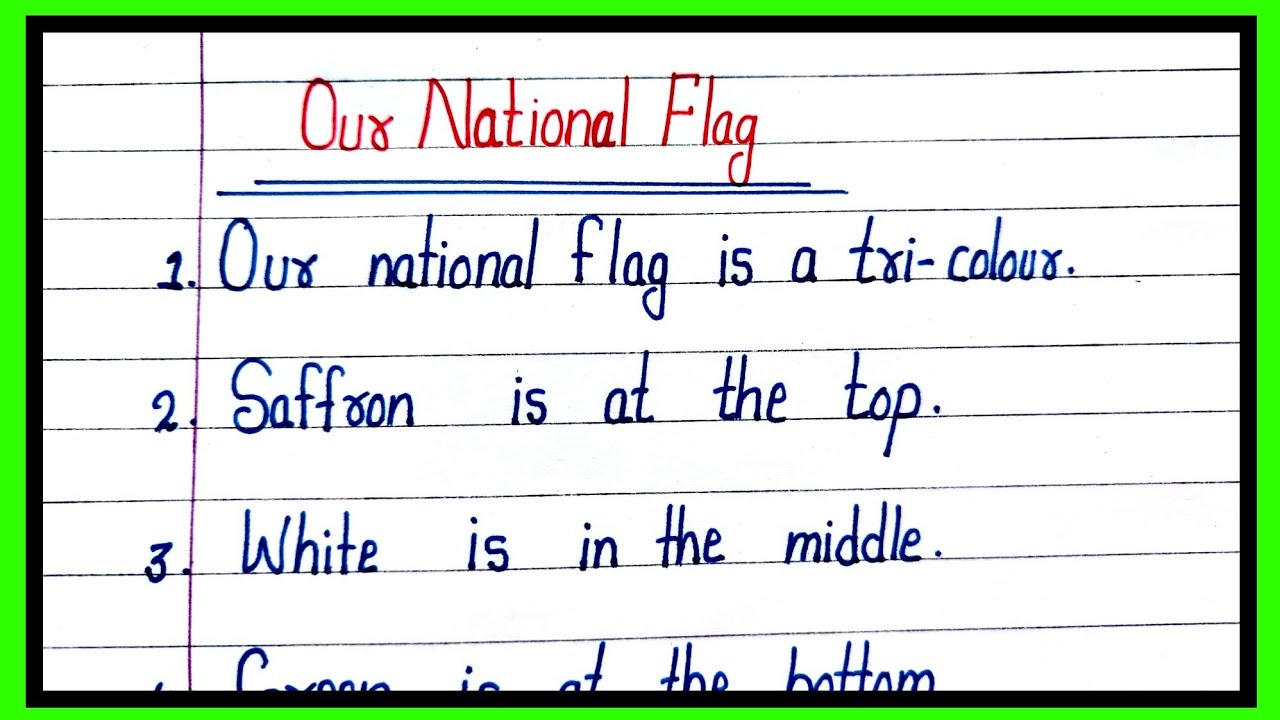 Our National Flag
1. Our national flag is a tri-colour.
2. Saffron is at the top.
3. White is in the middle.
4. Green is at the bottom